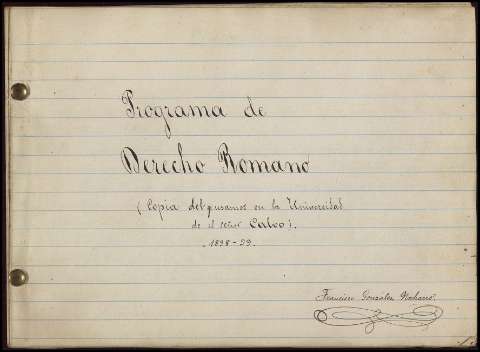 Programa de
Derecho Romano
(Copia del q usamos en la Universidad
de el señor Calvo).
1898-99.
Francisco González Naharro.